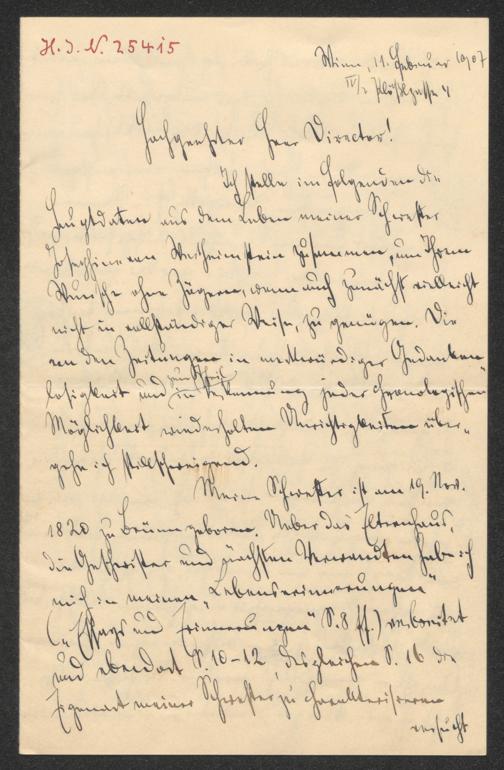 H. I. N. 25415
Wien, 11. Februar 1907
IV/2 Plößlgasse 4
Hochgeehrter Herr Director!
Ich stelle im Folgenden die
Hauptdaten aus dem Leben meiner Schwester
Josephine von Wertheimstein zusammen, um Ihrem
Wunsche ohne Zögern, wenn auch zunächst vielleicht
nicht in vollständiger Weise, zu genügen. Die
von den Zeitungen in merkwürdiger Gedanken-
losigkeit und zum Theil in Verkennung jeder chronologischen
Möglichkeit wiederholten Unrichtigkeiten über-
gehe ich stillschweigend.
Meine Schwester ist am 19. Nov.
1820 zu Brünn geboren. Ueber das Elternhaus,
die Geschwister und nächsten Verwandten habe ich
mich in meinen „Lebenserinnerungen“
(„Essays und Erinnerungen“ S. 8 ff.) verbreitet
und ebendort S. 10–12, desgleichen S. 16 die
Eigenart meiner Schwester zu charakterisieren
versucht